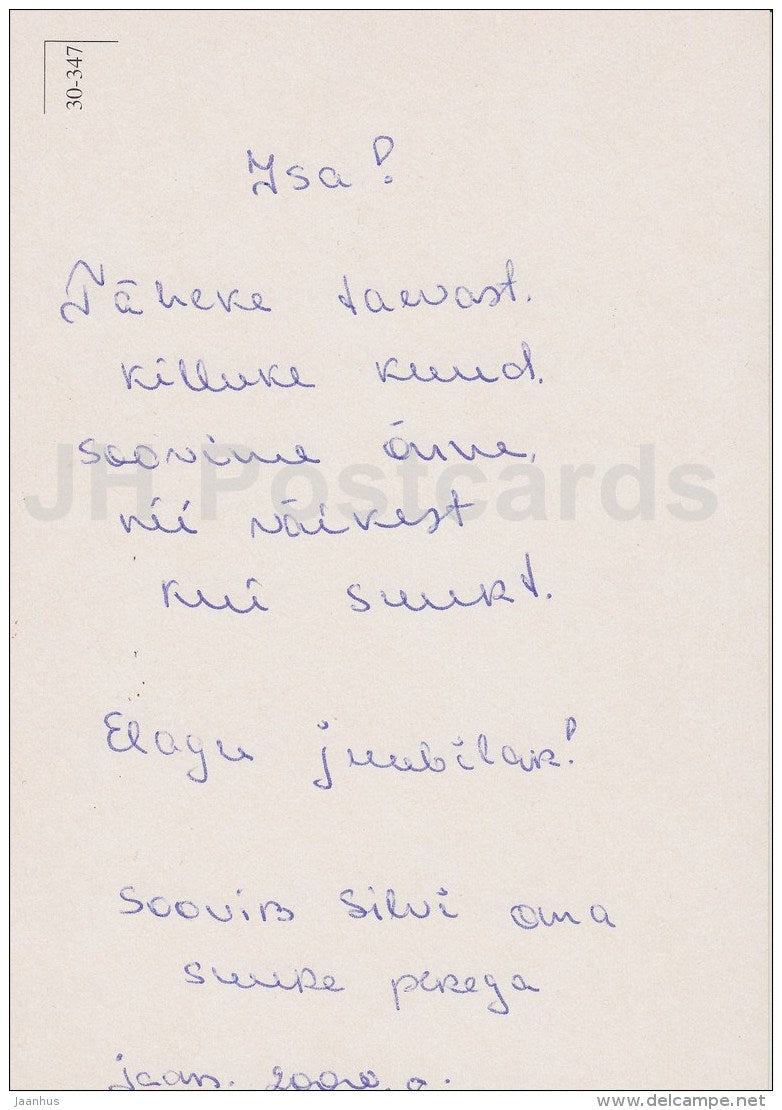 30-347
Isa!
Täheke taevast.
killuke kuud.
soovime õnne,
nii väikest
kui suurt.
Elagu juubilar!
Soovib Silvi oma
suure perega
jaan. 2000. a.
JH Postcards
Jaanhus
delcampe.net